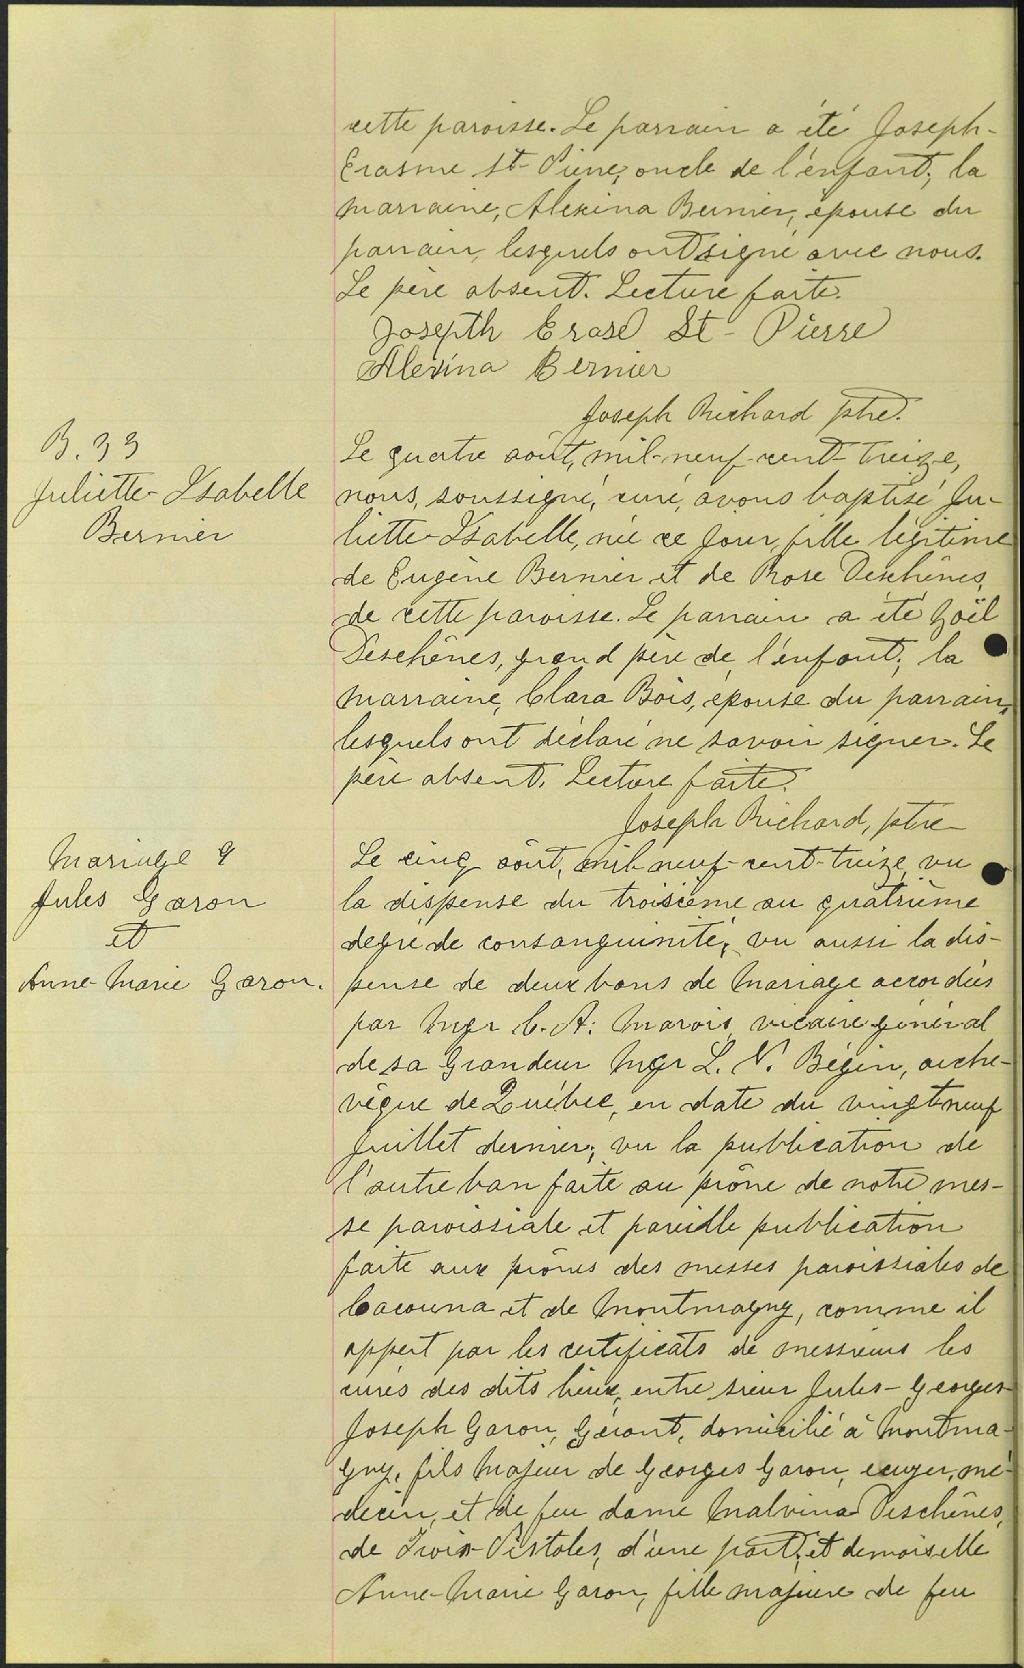 cette paroisse. Le parrain a été Joseph-
Erasme St-Pierre, oncle de l'enfant; la
marraine, Alexina Bernier, épouse du
parrain, lesquels ont signé avec nous.
Le père absent. Lecture faite.
Joseph Erase St-Pierre
Alexina Bernier
Joseph Richard ptre.
B. 33
Juliette-Isabelle
Bernier
Le quatre août, mil-neuf-cent-treize,
nous, soussigné, curé, avons baptisé Ju-
liette-Isabelle, née ce jour, fille légitime
de Eugène Bernier et de Rose Deschênes,
de cette paroisse. Le parrain a été Zoël
Deschênes, grand père de l'enfant; la
marraine, Clara Bois, épouse du parrain,
lesquels ont déclaré ne savoir signer. Le
père absent. Lecture faite.
Joseph Richard, ptre
Mariage 9
Jules Garon
et
Anne-Marie Garon.
Le cinq août, mil-neuf-cent-treize, vu
la dispense du troisième au quatrième
degré de consanguinité, vu aussi la dis-
pense de deux bans de mariage accordés
par Mgr C. A. Marois, vicaire général
de sa Grandeur Mgr L. N. Bégin, arche-
vêque de Québec, en date du vingt-neuf
Juillet dernier; vu la publication de
l'autre ban faite au prône de notre mes-
se paroissiale et pareille publication
faite aux prônes des messes paroissiales de
Cacouna et de Montmagny, comme il
appert par les certificats de messieurs les
curés des dits lieux, entre sieur Jules-Georges-
Joseph Garon, Gérant, domicilié à Montma-
gny, fils majeur de Georges Garon, écuyer, mé-
decin, et de feu dame Malvina Deschênes,
de Trois-Pistoles, d'une part; et demoiselle
Anne-Marie Garon, fille majeure de feu